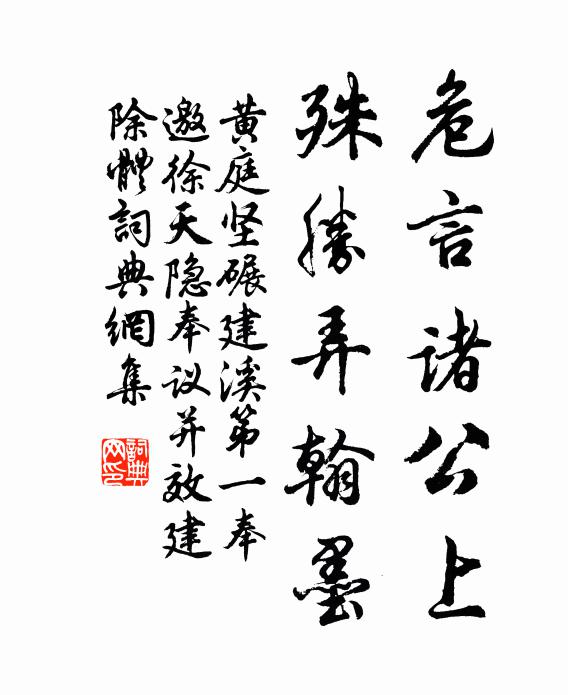 危言诸公上
殊勝弄翰墨
黄庭坚碾建溪第一奉
邀徐天隐奉议并效建
除體詞典網集
詞典
网印